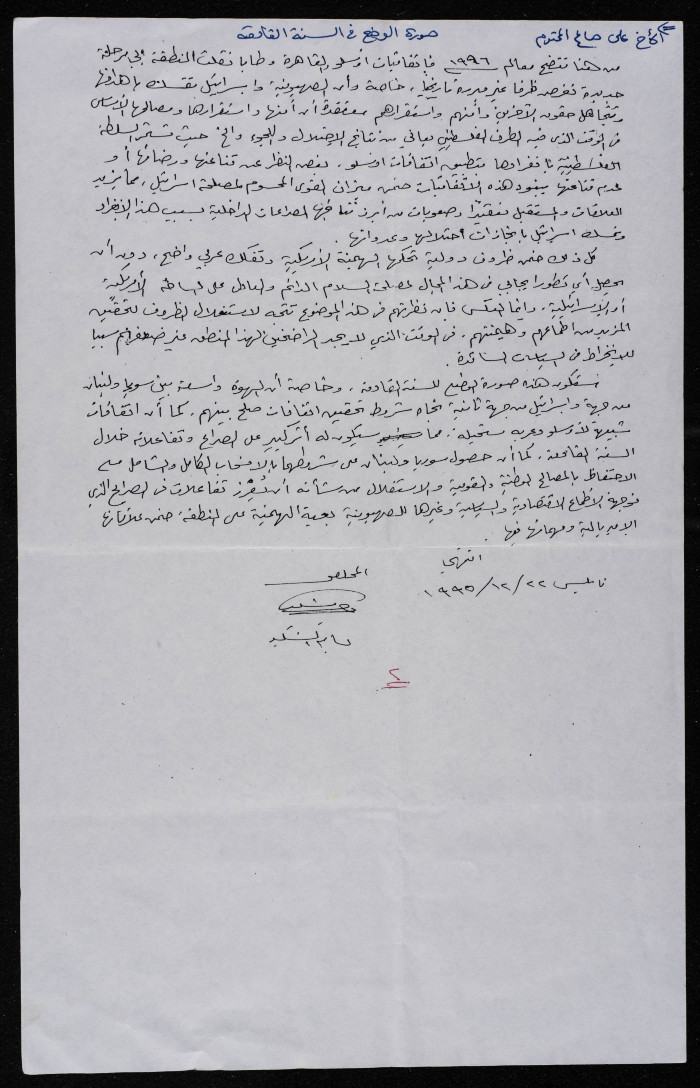 الأخ علي صالح المحترم صورة الوضع في السنة القادمة
من هنا تتضح معالم ١٩٩٦ فاتفاقيات أوسلو والقاهرة وطابا نقلت المنطقة إلى مرحلة
جديدة تفرض ظرفا غير مبررة تاريخيا، خاصة وأن الصهيونية وإسرائيل تتمسك بأهدافها
وتتجاهل حقوق الآخرين وأمنهم واستقرارهم معتقدة أن أمنها واستقرارها ومصالحها الأساس
في الوقت الذي فيه الطرف الفلسطيني يعاني من نتائج الاحتلال واللجوء والخ حيث تستمر السلطة
الفلسطينية بانفرادها بتطبيق اتفاقات أوسلو. بغض النظر عن قناعتها ورضائها أو
عدم قناعتها ببنود هذه الاتفاقيات ضمن ميزان القوى المحسوم لمصلحة اسرائيل، مما يزيد
العلاقات والمستقبل تعقيدا وصعوبات من أبرز نتائجها الصراعات الداخلية بسبب هذا الانفراد
وتمسك اسرائيل بانجازات احتلالها وعدوانها.
كل ذلك ضمن ظروف دولية تحكمها الهيمنة الأمريكية وتفكك عربي واضح، دون أن
يحصل أي تطور ايجابي في هذا المجال لمصلحة السلام الدائم والعادل على الساحة الأمريكية
أو الإسرائيلية. وإنما العكس فإن نظرتهم في هذا الموضوع تتجه لاستغلال الظروف لتحقيق
المزيد من أطماعهم وهيمنتهم. في الوقت الذي لا يجد الرافضين لهذا المنطق غير ضعفهم سببا
للانخراط في السياسات السائدة.
ستكون هذه صورة الوضع للسنة القادمة، وخاصة أن الهوة واسعة بين سوريا ولبنان
من جهة واسرائيل من جهة ثانية تجاه شروط تحقيق اتفاقات صلح بينهم. كما أن اتفاقات
شبيهة لأوسلو وعربه مستحيلة، مما سيكون له أثر كبير على الصراع وتفاعلاته خلال
السنة القادمة. كما أن حصول سوريا ولبنان على شروطهما بالانسحاب الكامل والشامل مع
الاحتفاظ بالمصالح الوطنية والقومية والاستقلال من شأنه أن يفرز تفاعلات في الصراع الذي
توجهه الأطماع الاقتصادية والسياسية وغيرها للصهيونية بجهة الهيمنة على المنطقة ضمن علاقاتها
الامبريالية ومهماتها فيها.
انتهى
نابلس ٢٢/١٢/١٩٩٥
المخلص
٢